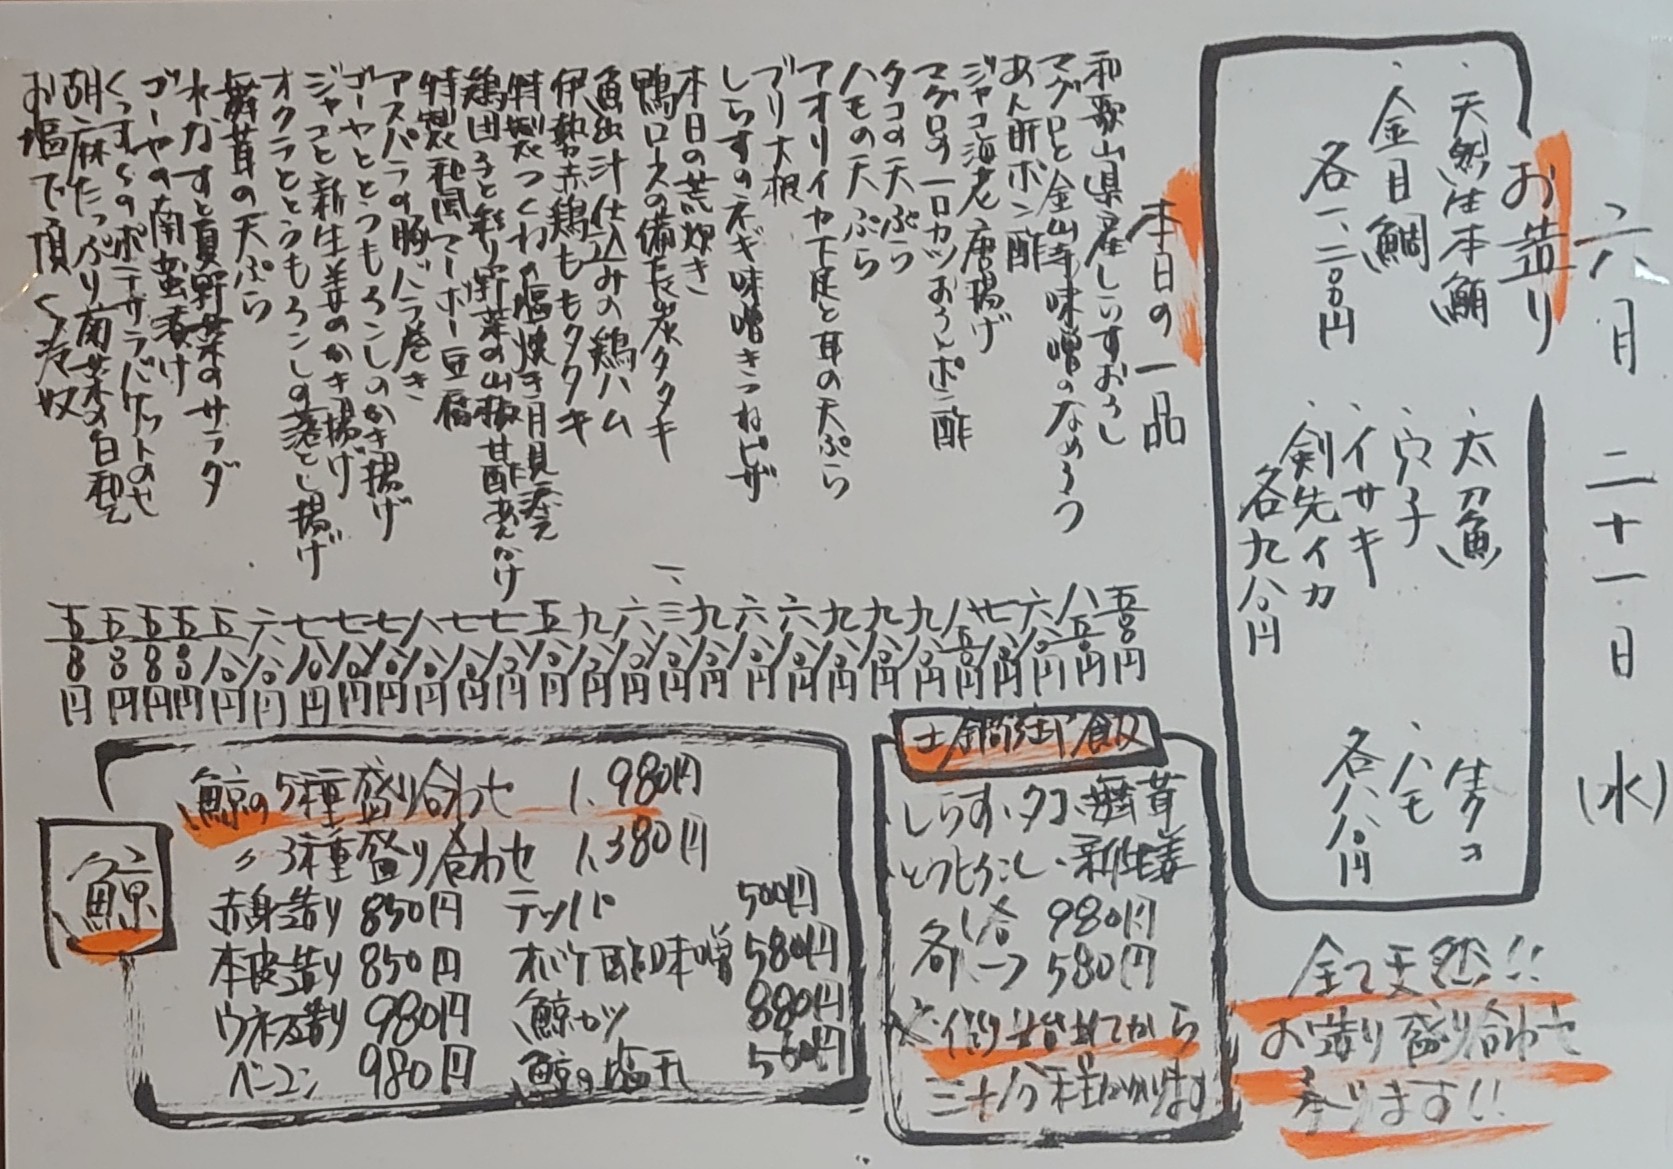 六月二十一日(水)
お造り
・天然生本鮪
・金目鯛
各一、二八〇円
・太刀魚
・穴子
・イサキ
・剣先イカ
各九八〇円
・生タコ
・ハモ
各八八〇円
全て天然!!
お造り盛り合わせ
承ります!!
本日の一品
和歌山県産しらすおろし 五〇〇円
マグロと金山寺味噌のなめろう 八五〇円
あん肝ポン酢 六八〇円
ジャコ海老唐揚げ 七八〇円
マグロの一口カツおろしポン酢 八五〇円
タコの天ぷら 九八〇円
ハモの天ぷら 九八〇円
アオリイカ下足と耳の天ぷら 九八〇円
ブリ大根 六八〇円
しらすのネギ味噌きつねピザ 六八〇円
本日の荒炊き 九八〇円
鴨ロースの備長炭タタキ 一、三八〇円
魚出汁仕込みの鶏ハム 六八〇円
伊勢赤鶏ももタタキ 九八〇円
特製つくねの塩焼き月見添え 五八〇円
鶏団子と彩り野菜の山椒甘酢あんかけ 七八〇円
特製和風マーボー豆腐 七八〇円
アスパラの豚バラ巻き 八八〇円
ゴーヤととうもろこしのかき揚げ 七八〇円
ジャコと新生姜のかき揚げ 七八〇円
オクラととうもろこしの落とし揚げ 七八〇円
舞茸の天ぷら 六八〇円
水なすと夏野菜のサラダ 五八〇円
ゴーヤの南蛮漬け 五〇〇円
ポテサラバケットのせ 五〇〇円
胡麻たっぷり菊菜の白和え 五〇〇円
お塩で頂く冷奴 五〇〇円
土鍋御飯
しらす・タコ・舞茸
とうもろこし・新生姜
各一合 980円
各ハーフ 580円
※作り始めてから
三十分程かかります
鯨
鯨の5種盛り合わせ 1,980円
〃 3種盛り合わせ 1,380円
赤身造り 850円 テッパ 500円
本皮造り 850円 オバケ酢味噌 580円
ウネス造り 980円 鯨カツ 880円
ベーコン 980円 鯨の塩干 580円